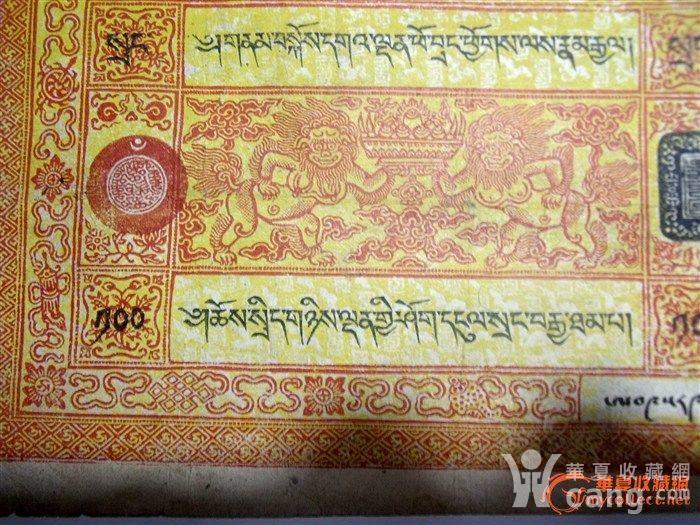 སྲང
༄།གནམ་བསྐོས་དགའ་ལྡན་ཕོ་བྲང་ཕྱོགས་ལས་རྣམ་རྒྱལ།
༡༠༠
༄ཆོས་སྲིད་གཉིས་ལྡན་གྱི་ཤོག་དངུལ་སྲང་བརྒྱ་ཐམ་པ།
華夏收藏網
華夏收藏網
mycollect.net